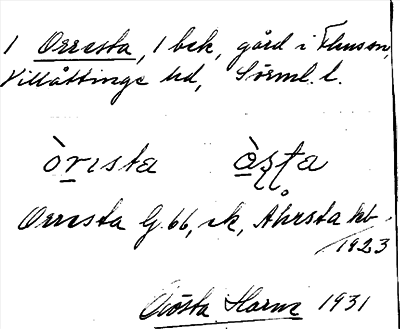 1 Orresta, 1 bek, gård i Flens sn,
Villåttinge hd, Sörml. l.
òrısta òşţa
Orresta G. 66, ek, Åhrsta kb.
1923
Gösta Harne 1931